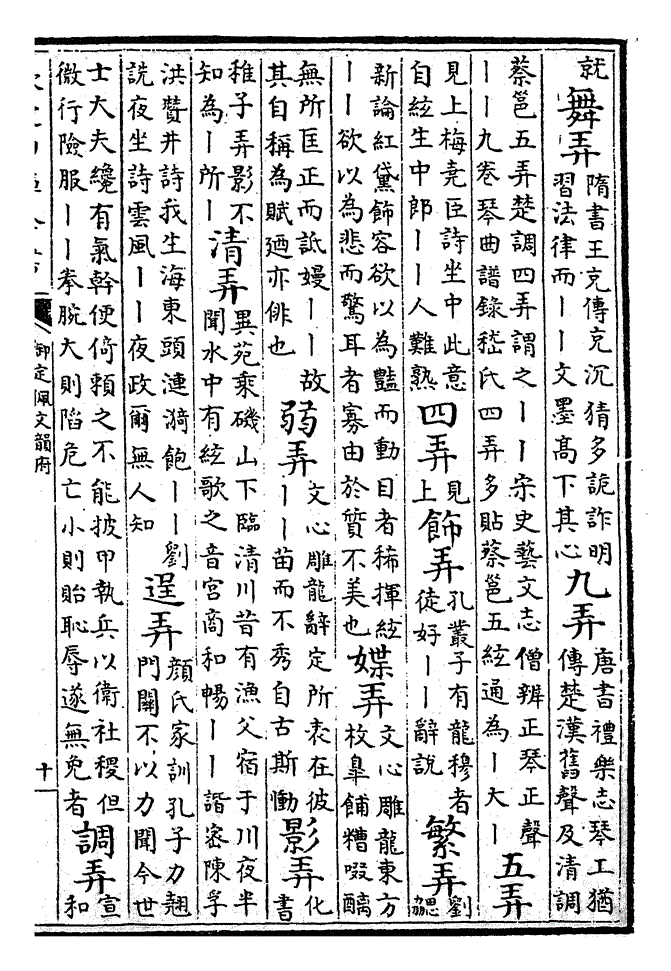 就舞弄隋書王充傳充沉猜多詭詐明習法律而丨丨文墨高下其心九弄唐書禮樂志琴工猶傳楚漢舊聲及清調
蔡邕五弄楚調四弄謂之丨丨宋史藝文志僧辨正琴正聲丨丨九卷琴曲譜錄嵇氏四弄多貼蔡邕五絃通為丨大丨五弄
見上梅堯臣詩坐中此意自絃生中郎丨丨人難熟四弄見上飾弄孔叢子有龍穆者徒好丨丨辭説繁弄劉勰
新論紅黛飾容欲以為豔而動目者稀揮絃丨丨欲以為悲而驚耳者寡由於質不美也媟弄文心雕龍東方枚臯餔糟啜醨
無所匡正而詆嫚丨丨故其自稱為賦廼亦俳也弱弄文心雕龍辭定所表在彼丨丨苗而不秀自古斯慟影弄化書
稚子弄影不知為丨所丨清弄異苑乘磯山下臨清川昔有漁父宿于川夜半聞水中有絃歌之音宮商和暢丨丨諧密陳孚
洪贊井詩我生海東頭漣漪飽丨丨劉詵夜坐詩雲風丨丨夜政爾無人知逞弄顔氏家訓孔子力翹門關不以力聞今世
士大夫纔有氣幹便倚賴之不能披甲執兵以衛社稷但微行險服丨丨拳腕大則陷危亡小則貽恥辱遂無免者調弄宣和
御定佩文韻府
十